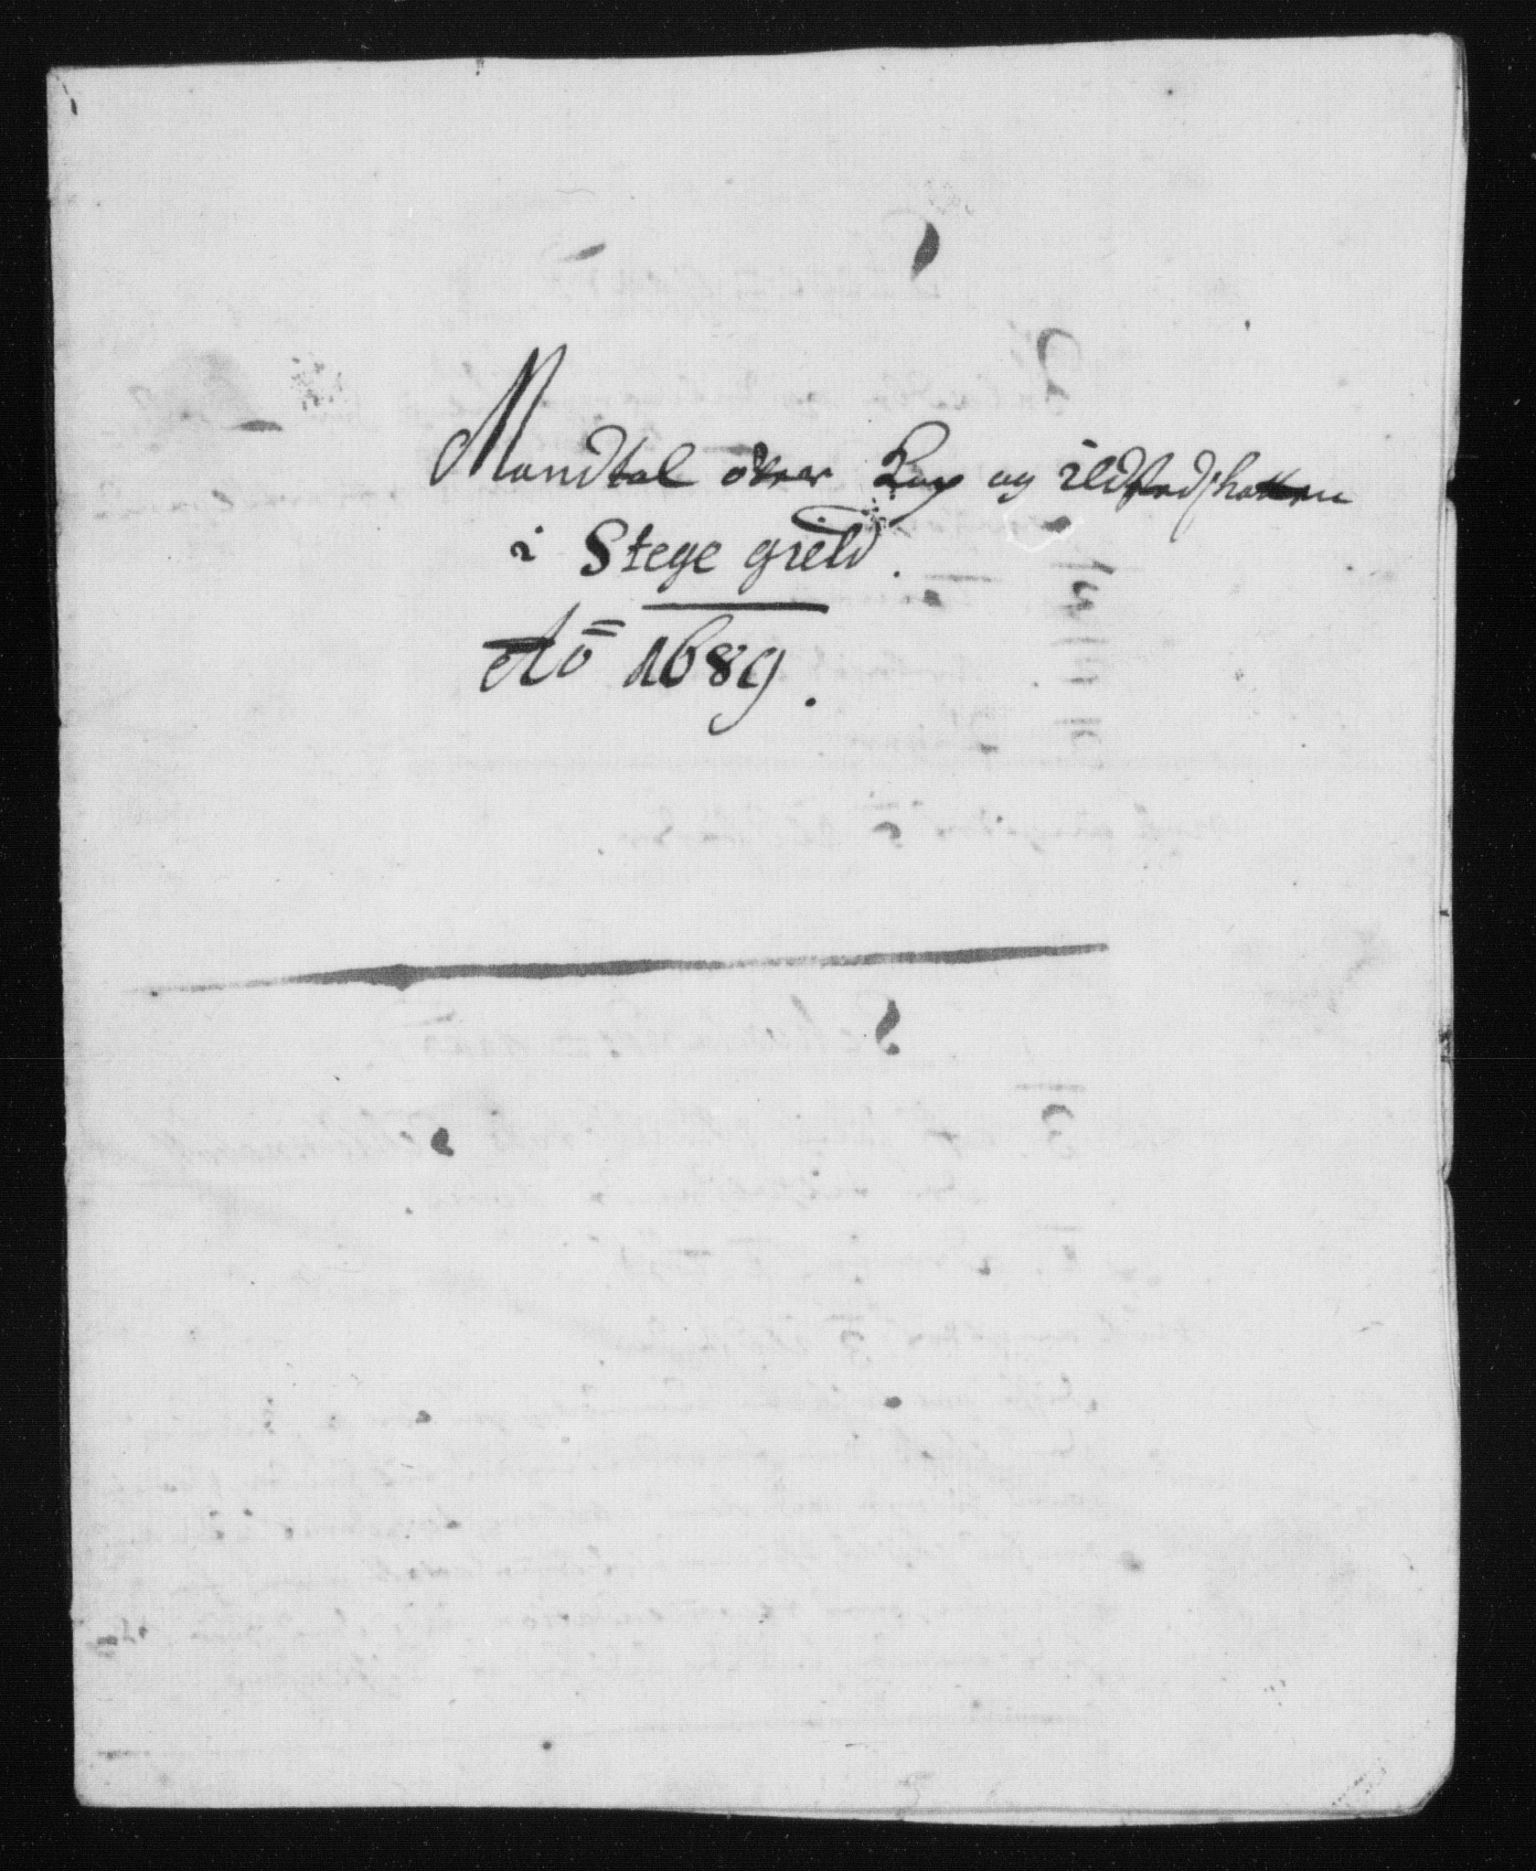 Mandtal over Qvæg og ildstedskatten
i Stege gield.
Ao 1689.